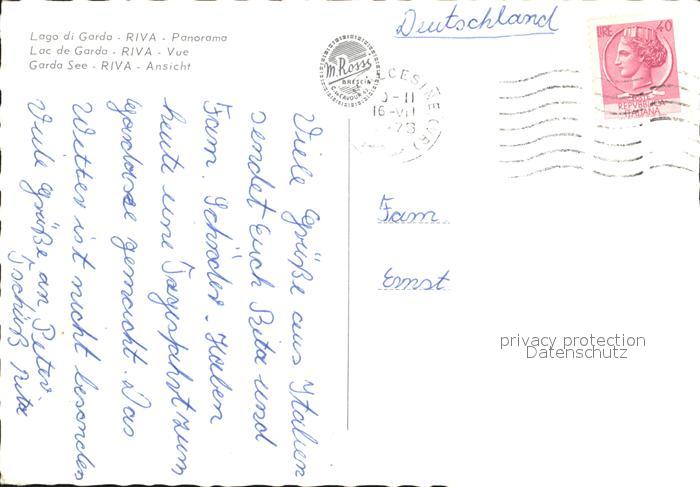 Lago di Garda - RIVA - Panorama
Lac de Garda - RIVA - Vue
Garda See - RIVA - Ansicht
Deutschland
m. Rossi
BRESCIA
C. CAVOUR
CESINE (VR)
16-VII
73
LIRE 40
POSTE
REPVBBLICA
ITALIANA
Viele Grüße aus Italien
sendet Euch Rita und
Fam. Schröder. Haben
heute eine Tagesfahrt zum
Gardasee gemacht. Das
Wetter ist nicht besonders
Viele Grüße an Peter.
Tschüß Rita
Fam
Ernst
privacy protection
Datenschutz